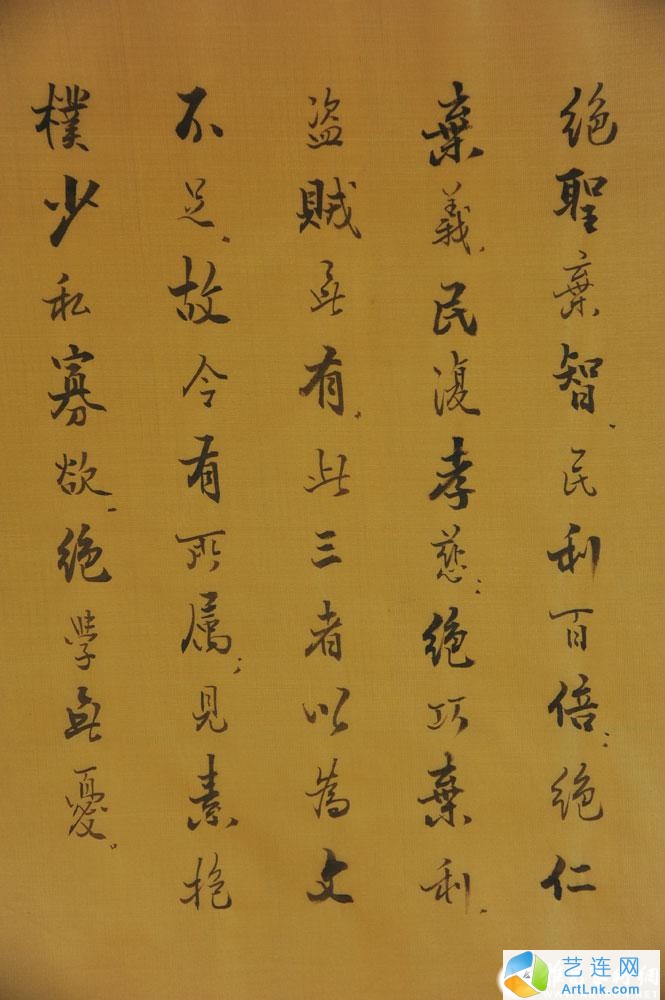 绝聖棄智、民利百倍；绝仁
棄義、民復孝慈；绝巧棄利、
盗賊無有、此三者以為文
不足、故令有所属；見素抱
樸少私寡欲、绝學無憂。
艺连网
ArtLnk.com